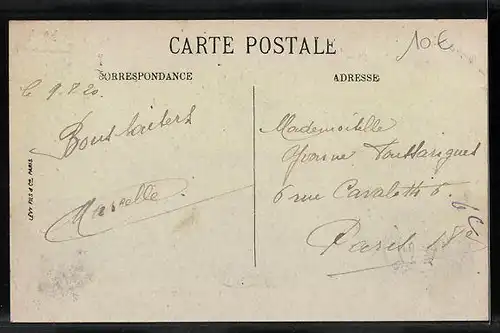 CARTE POSTALE
10€
CORRESPONDANCE
ADRESSE
Le 9.7.20
Bons baisers
Marcelle
LÉVY FILS & Cie, PARIS
Mademoiselle
Yvonne
6 rue Cavalotti 6
Paris 18e